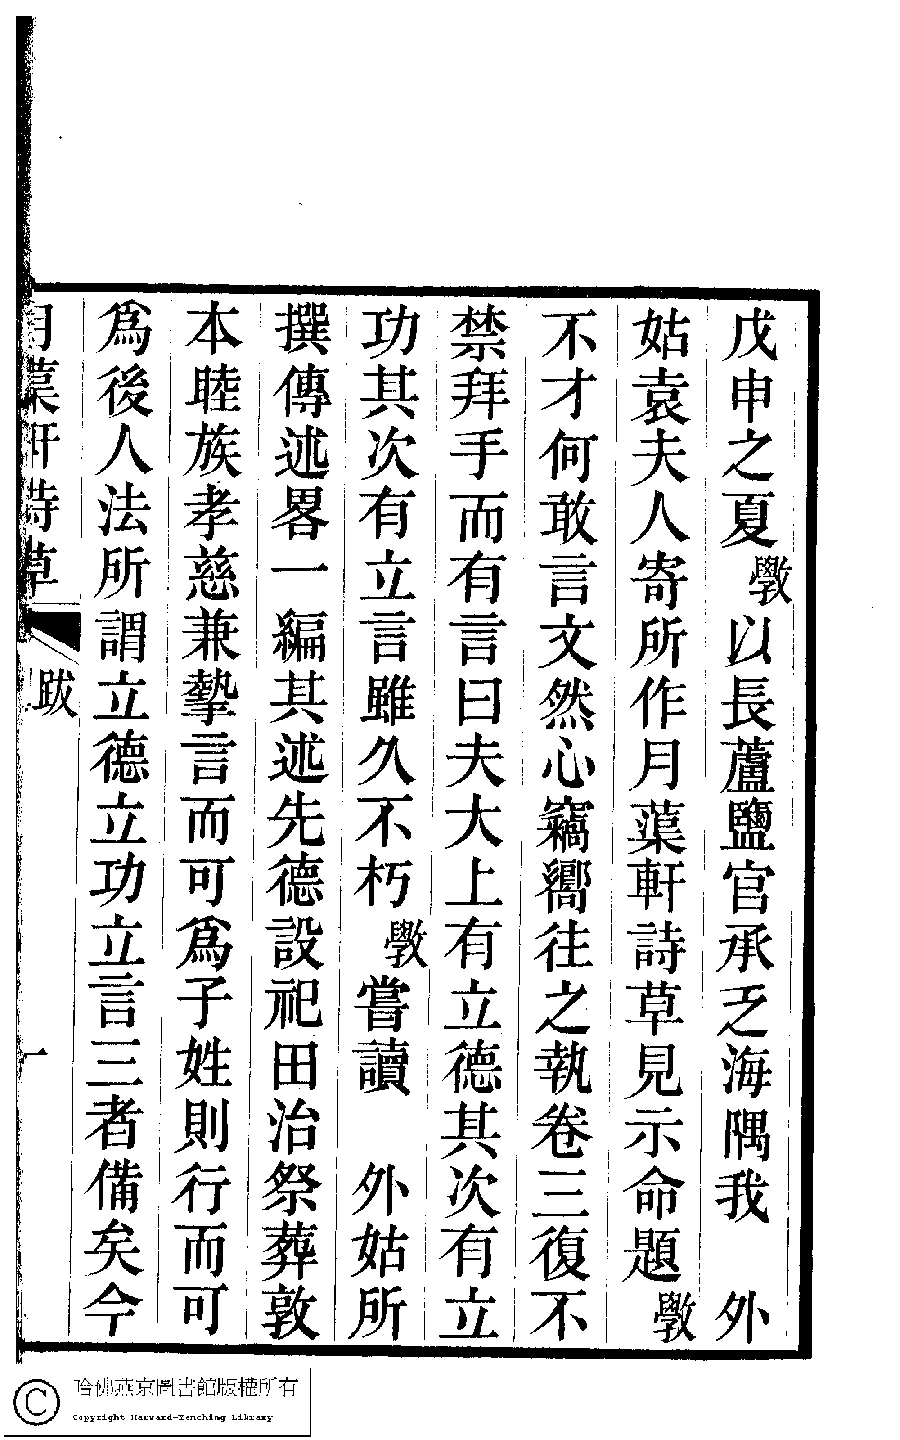 戊申之夏斆以長蘆鹽官承乏海隅我　外
姑袁夫人寄所作月蕖軒詩草見示命題斆
不才何敢言文然心竊嚮往之執卷三復不
禁拜手而有言曰夫大上有立德其次有立
功其次有立言雖久不朽斆嘗讀　外姑所
撰傳述畧一編其述先德設祀田治祭葬敦
本睦族孝慈兼摯言而可爲子姓則行而可
爲後人法所謂立德立功立言三者備矣今
月蕖軒詩草　跋　一
哈佛燕京圖書館版權所有
Copyright Harvard-Yenching Library